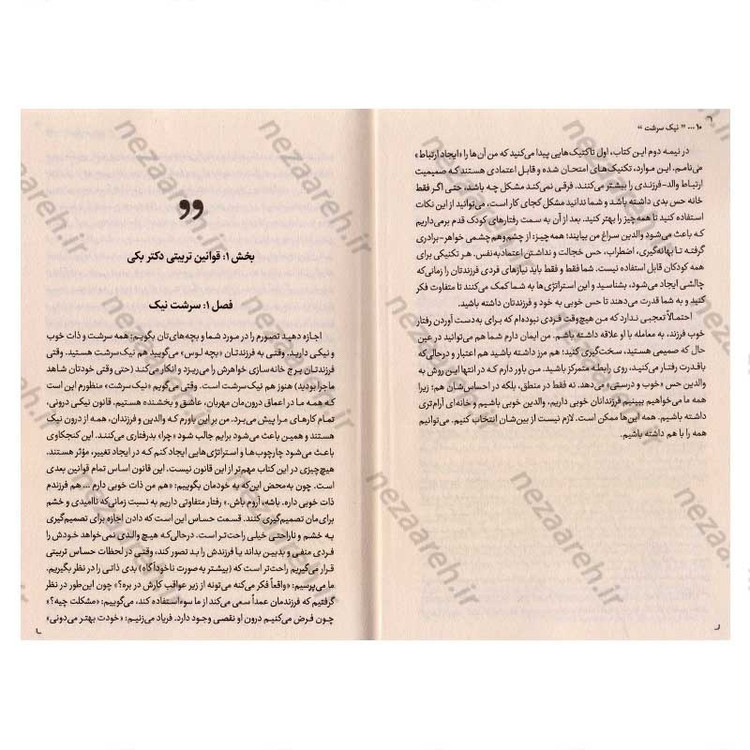 ۱۰ ... " نیک سرشت "
در نیمه دوم این کتاب، اول تاکتیک‌هایی پیدا می‌کنید که من آن‌ها را «ایجاد ارتباط»
می‌نامم. این موارد، تکنیک‌های امتحان شده و قابل اعتمادی هستند که صمیمیت
ارتباط والد-فرزندی را بیشتر می‌کنند. فرقی نمی‌کند مشکل چه باشد، حتی اگر فقط
خانه حس بدی داشته باشد و شما ندانید مشکل کجای کار است، می‌توانید از این نکات
استفاده کنید تا همه‌چیز را بهتر کنید. بعد از آن به سمت رفتارهای کودک قدم برمی‌داریم
که باعث می‌شود والدین سراغ من بیایند؛ همه‌چیز؛ از چشم وهم‌چشمی خواهر-برادری
گرفته تا بهانه‌گیری، اضطراب، حس خجالت و نداشتن اعتمادبه‌نفس. هر تکنیکی برای
همه کودکان قابل استفاده نیست. شما فقط و فقط باید نیازهای فردی فرزندتان را زمانی‌که
چالشی ایجاد می‌شود، بشناسید و این استراتژی‌ها به شما کمک می‌کنند تا متفاوت فکر
کنید و به شما قدرت می‌دهند تا حس خوبی به خود و فرزندتان داشته باشید.
احتمالاً تعجبی ندارد که من هیچ‌وقت فردی نبوده‌ام که برای به‌دست آوردن رفتار
خوب فرزند، به معامله با او علاقه داشته باشم. من ایمان دارم شما هم می‌توانید در عین
حال که صمیمی هستید، سخت‌گیری کنید؛ هم مرز داشته باشید هم اعتبار و درحالی‌که
باقدرت رفتار می‌کنید، روی رابطه متمرکز باشید. من باور دارم که در انتها این روش به
والدین حس «خوب و درستی» می‌دهد. نه فقط در منطق، بلکه در احساس‌شان هم؛ زیرا
همه ما می‌خواهیم ببینیم فرزندانمان خوبی داریم، والدین خوبی باشیم و خانه‌ای آرام‌تری
داشته باشیم. همه این‌ها ممکن است. لازم نیست از بین‌شان انتخاب کنیم. می‌توانیم
همه را با هم داشته باشیم.
بخش ۱: قوانین تربیتی دکتر بکی
فصل ۱: سرشت نیک
اجازه دهید تصورم را در مورد شما و بچه‌های‌تان بگویم: همه سرشت و ذات خوب
و نیکی دارید. وقتی به فرزندتان «بچه لوس» می‌گویید هم نیک سرشت است. وقتی
فرزندتان برج خانه‌سازی خواهرش را می‌ریزد و انکار می‌کند (حتی وقتی خودتان شاهد
ماجرا بودید) هنوز هم نیک سرشت است. وقتی می‌گویم «نیک سرشت» منظورم این است
که همه ما در اعماق درون‌مان مهربان، عاشق و بخشنده هستیم. قانون نیکی درونی،
تمام کارهای مرا پیش می‌برد. من بر این باورم که والدین و فرزندان، همه از درون نیک
هستند و همین باعث می‌شود برایم جالب شود «چرا» بدرفتاری می‌کنند. این کنجکاوی
باعث می‌شود چارچوب‌ها و استراتژی‌هایی ایجاد کنم که در ایجاد تغییر، مؤثر هستند.
هیچ‌چیزی در این کتاب مهم‌تر از این قانون نیست. این قانون اساس تمام قوانین بعدی
است. چون به‌محض این‌که به خودمان بگوییم: «هم من ذات خوبی دارم ... هم فرزندم
ذات خوبی داره. باشه، آروم باش.» رفتار متفاوتی داریم به نسبت زمانی‌که ناامیدی و خشم
برای‌مان تصمیم‌گیری کنند. قسمت حساس این است که دادن اجازه برای تصمیم‌گیری
به خشم و ناراحتی خیلی راحت‌تر است. درحالی‌که هیچ والدی نمی‌خواهد خودش را
فردی منفی و بدبین بداند یا فرزندش را بد تصور کند، وقتی در لحظات حساس تربیتی
قرار می‌گیریم راحت‌تر است که (بیشتر به‌صورت ناخودآگاه) بدی ذاتی را در نظر بگیریم.
ما می‌پرسیم: «واقعاً فکر می‌کنه می‌تونه از زیر عواقب کارش در بره؟» چون این‌طور در نظر
گرفتیم که فرزندمان عمداً سعی می‌کند از ما سوءاستفاده کند، می‌گوییم: «مشکلت چیه؟»
چون فرض می‌کنیم درون او نقصی وجود دارد. فریاد می‌زنیم: «خودت بهتر می‌دونی»
nezaareh.ir